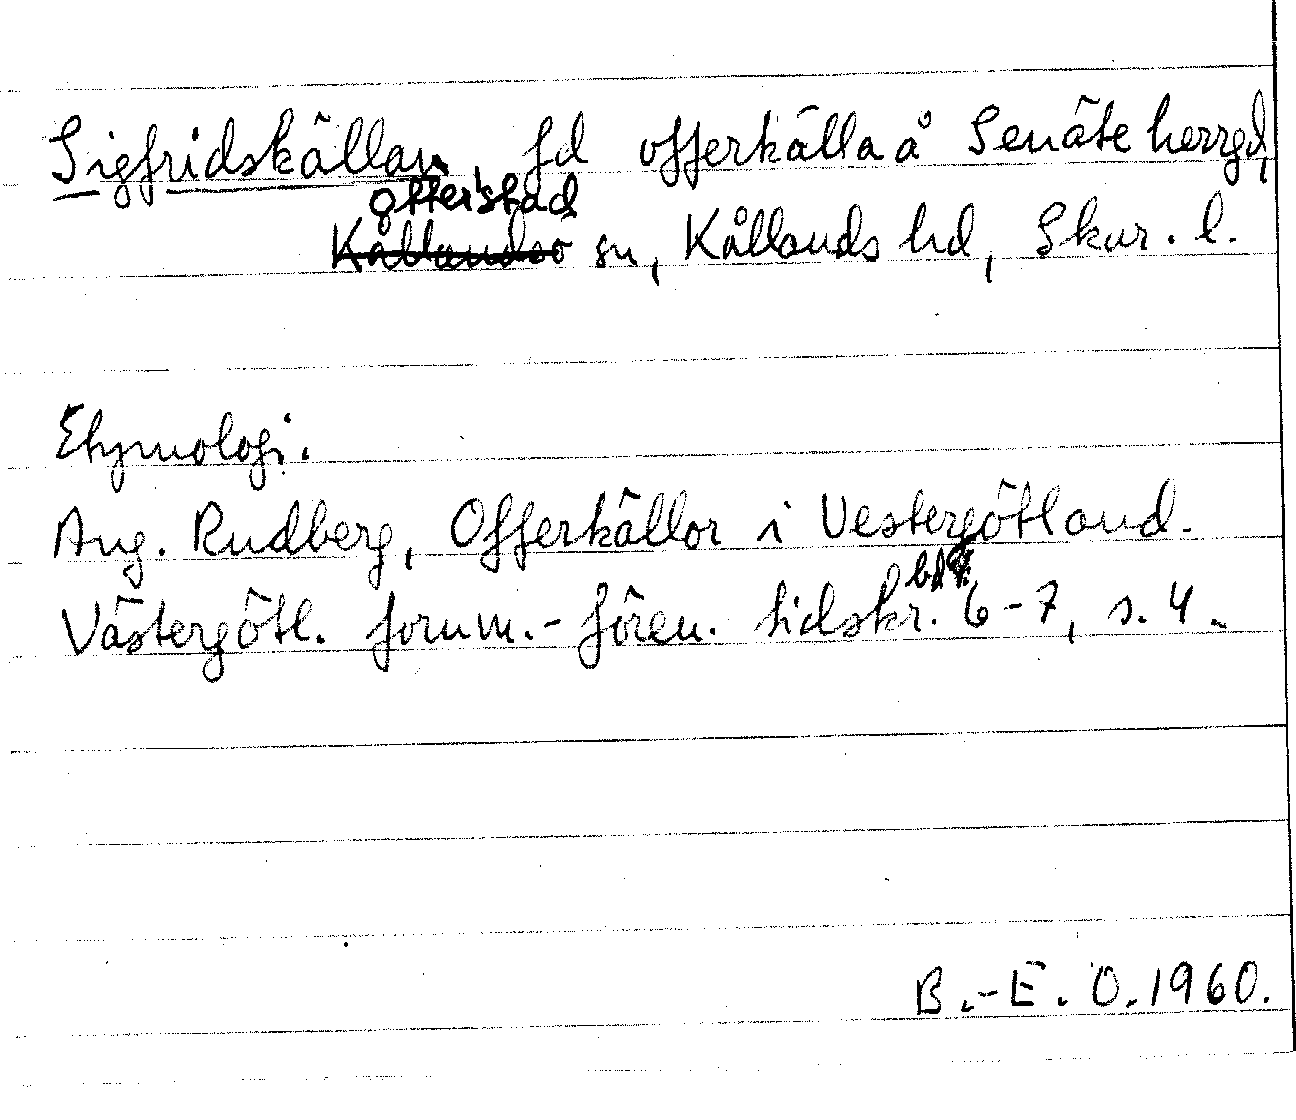 Sigfridskällan, fd offerkälla å Senäte herrgd,
Otterstad
Kållandsö sn, Kållands hd, Skar. l.
Etymologi.
Aug. Rudberg, Offerkällor i Vestergötland.
bd
Västergötl. fornm.-fören. tidskr. 6-7, s. 4.
B.-E. O. 1960.